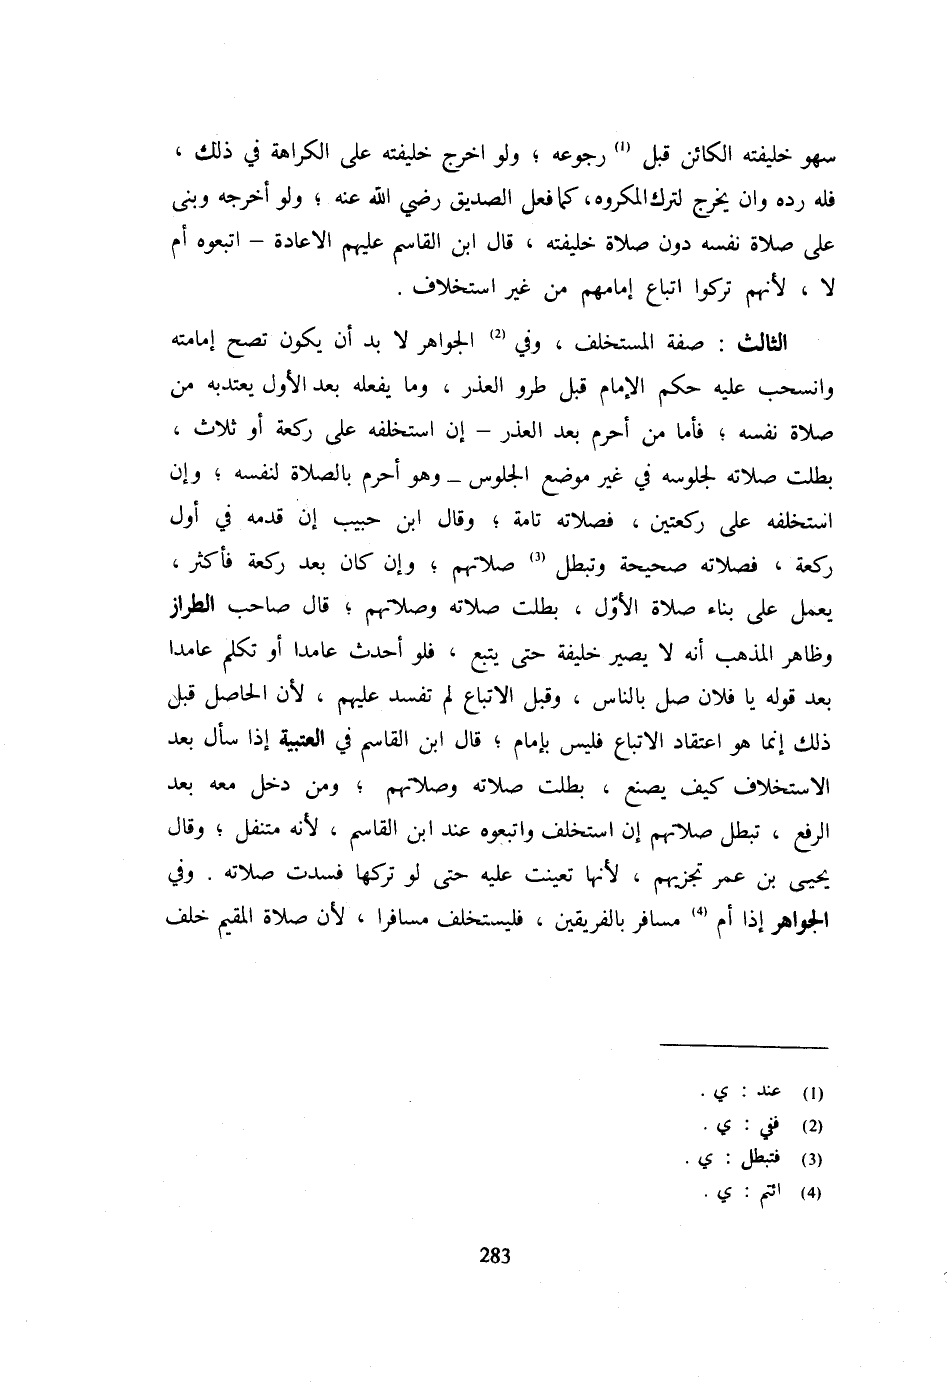 سهو خليفته الكائن قبل (1) رجوعه ؛ ولو اخرج خليفته على الكراهة في ذلك ،
فله رده وان يخرج لترك المكروه ، كما فعل الصديق رضي الله عنه ؛ ولو أخرجه وبنى
على صلاة نفسه دون صلاة خليفته ، قال ابن القاسم عليهم الاعادة – اتبعوه أم
لا ، لأنهم تركوا اتباع إمامهم من غير استخلاف .
الثالث : صفة المستخلف ، وفي (2) الجواهر لا بد أن يكون تصح إمامته
وانسحب عليه حكم الإمام قبل طرو العذر ، وما يفعله بعد الأول يعتدبه من
صلاة نفسه ؛ فأما من أحرم بعد العذر – إن استخلفه على ركعة أو ثلاث ،
بطلت صلاته لجلوسه في غير موضع الجلوس – وهو أحرم بالصلاة لنفسه ؛ وإن
استخلفه على ركعتين ، فصلاته تامة ؛ وقال ابن حبيب إن قدمه في أول
ركعة ، فصلاته صحيحة وتبطل (3) صلاتهم ؛ وإن كان بعد ركعة فأكثر ،
يعمل على بناء صلاة الأوّل ، بطلت صلاته وصلاتهم ؛ قال صاحب الطراز
وظاهر المذهب أنه لا يصير خليفة حتى يتبع ، فلو أحدث عامدا أو تكلم عامدا
بعد قوله يا فلان صل بالناس ، وقبل الاتباع لم تفسد عليهم ، لأن الحاصل قبل
ذلك إنما هو اعتقاد الاتباع فليس بإمام ؛ قال ابن القاسم في العتبية إذا سأل بعد
الاستخلاف كيف يصنع ، بطلت صلاته وصلاتهم ؛ ومن دخل معه بعد
الرفع ، تبطل صلاتهم إن استخلف واتبعوه عند ابن القاسم ، لأنه متنفل ؛ وقال
يحيى بن عمر تجزيهم ، لأنها تعينت عليه حتى لو تركها فسدت صلاته . وفي
الجواهر إذا أم (4) مسافر بالفريقين ، فليستخلف مسافرا ، لأن صلاة المقيم خلف
(1) عند : ي .
(2) ففي : ي .
(3) فتبطل : ي .
(4) ائتم : ي .
283